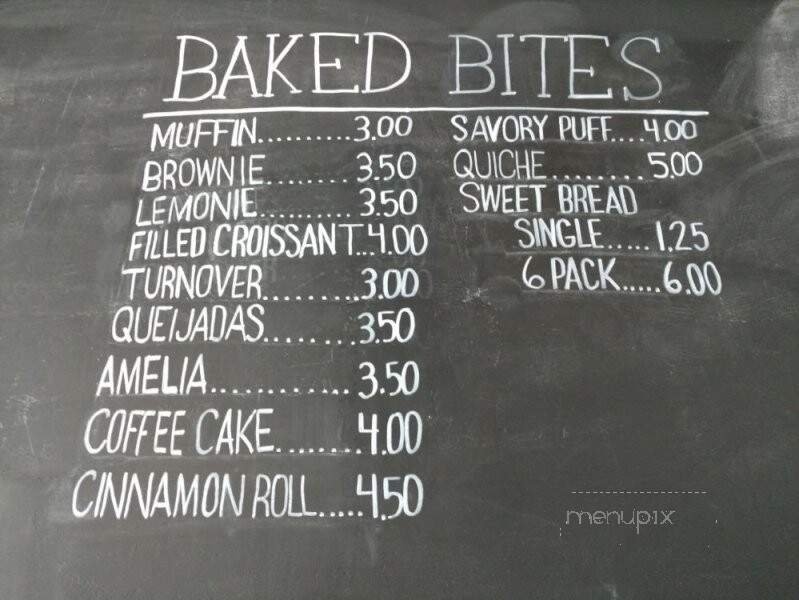 BAKED BITES
MUFFIN..........3.00
BROWNIE........3.50
LEMONIE..........3.50
FILLED CROISSANT...4.00
TURNOVER.........3.00
QUEIJADAS........3.50
AMELIA............3.50
COFFEE CAKE........4.00
CINNAMON ROLL.....4.50
SAVORY PUFF....4.00
QUICHE.........5.00
SWEET BREAD
SINGLE.....1.25
6 PACK.....6.00
menupix